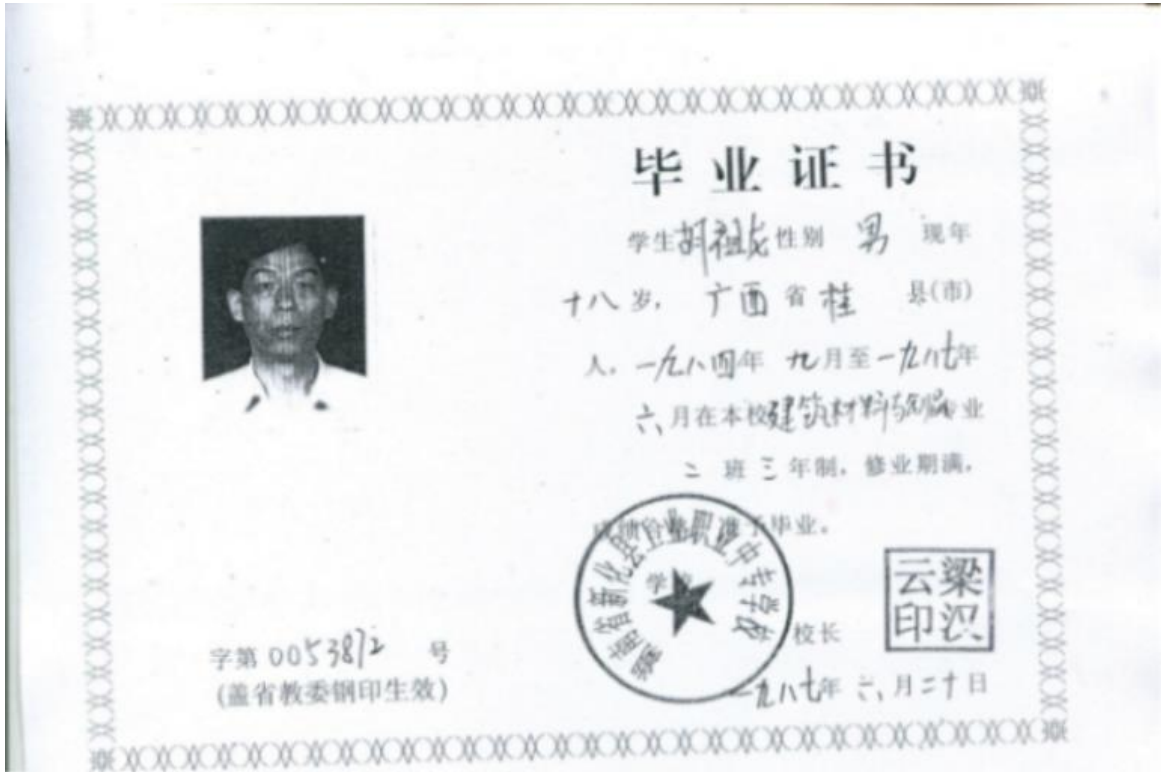 毕业证书
学生胡祖龙性别 男 现年
十八岁，广西省桂 县(市)
人，一九八四年 九月至一九八七年
六月在本校建筑材料 专业
二 班三年制，修业期满，
成绩合格准予毕业。
湖南省新化县 业职业中专学校
学校
校长
梁 云印
一九八七年 六月二十日
字第 0053872 号
(盖省教委钢印生效)